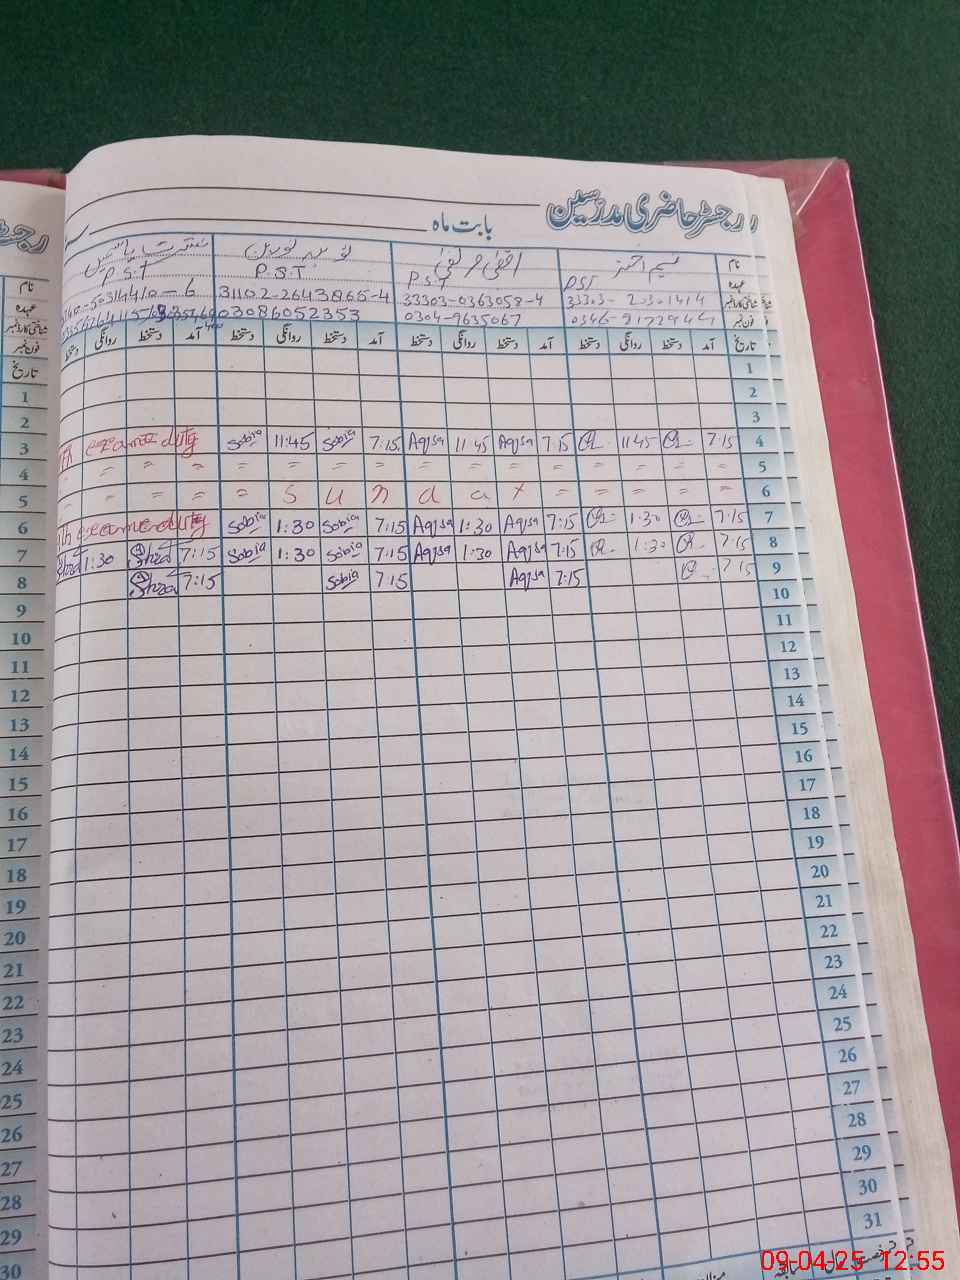 رجسٹر حاضری مدرسین
بابت ماہ
نام نسیم اختر اقصیٰ
عہدہ PST P.S.T P.S.T P.S.T
شناختی کارڈ نمبر 33303-0363059-4 31102-2643865-4
فون نمبر 0304-9635067 03086052353
تاریخ آمد دستخط روانگی دستخط آمد دستخط روانگی دستخط آمد دستخط روانگی دستخط آمد دستخط روانگی دستخط
1
2
3
4 7:15 11:45 7:15 Aqsa 11:45 Aqsa 7:15 Sobia 11:45 Sobia duty
5 = = = = = = = = = = = = = =
6 = = = = = S u n d a y = = = =
7 7:15 1:30 7:15 Aqsa 1:30 Aqsa 7:15 Sobia 1:30 Sobia duty
8 7:15 1:30 7:15 Aqsa 1:30 Aqsa 7:15 Sobia 1:30 Sobia 7:15 1:30
9 7:15 7:15 Aqsa 7:15 Sobia 7:15
10
11
12
13
14
15
16
17
18
19
20
21
22
23
24
25
26
27
28
29
30
31
نام
عہدہ
شناختی کارڈ نمبر
فون نمبر
تاریخ
1
2
3
4
5
6
7
8
9
10
11
12
13
14
15
16
17
18
19
20
21
22
23
24
25
26
27
28
29
30
09-04-25 12:55